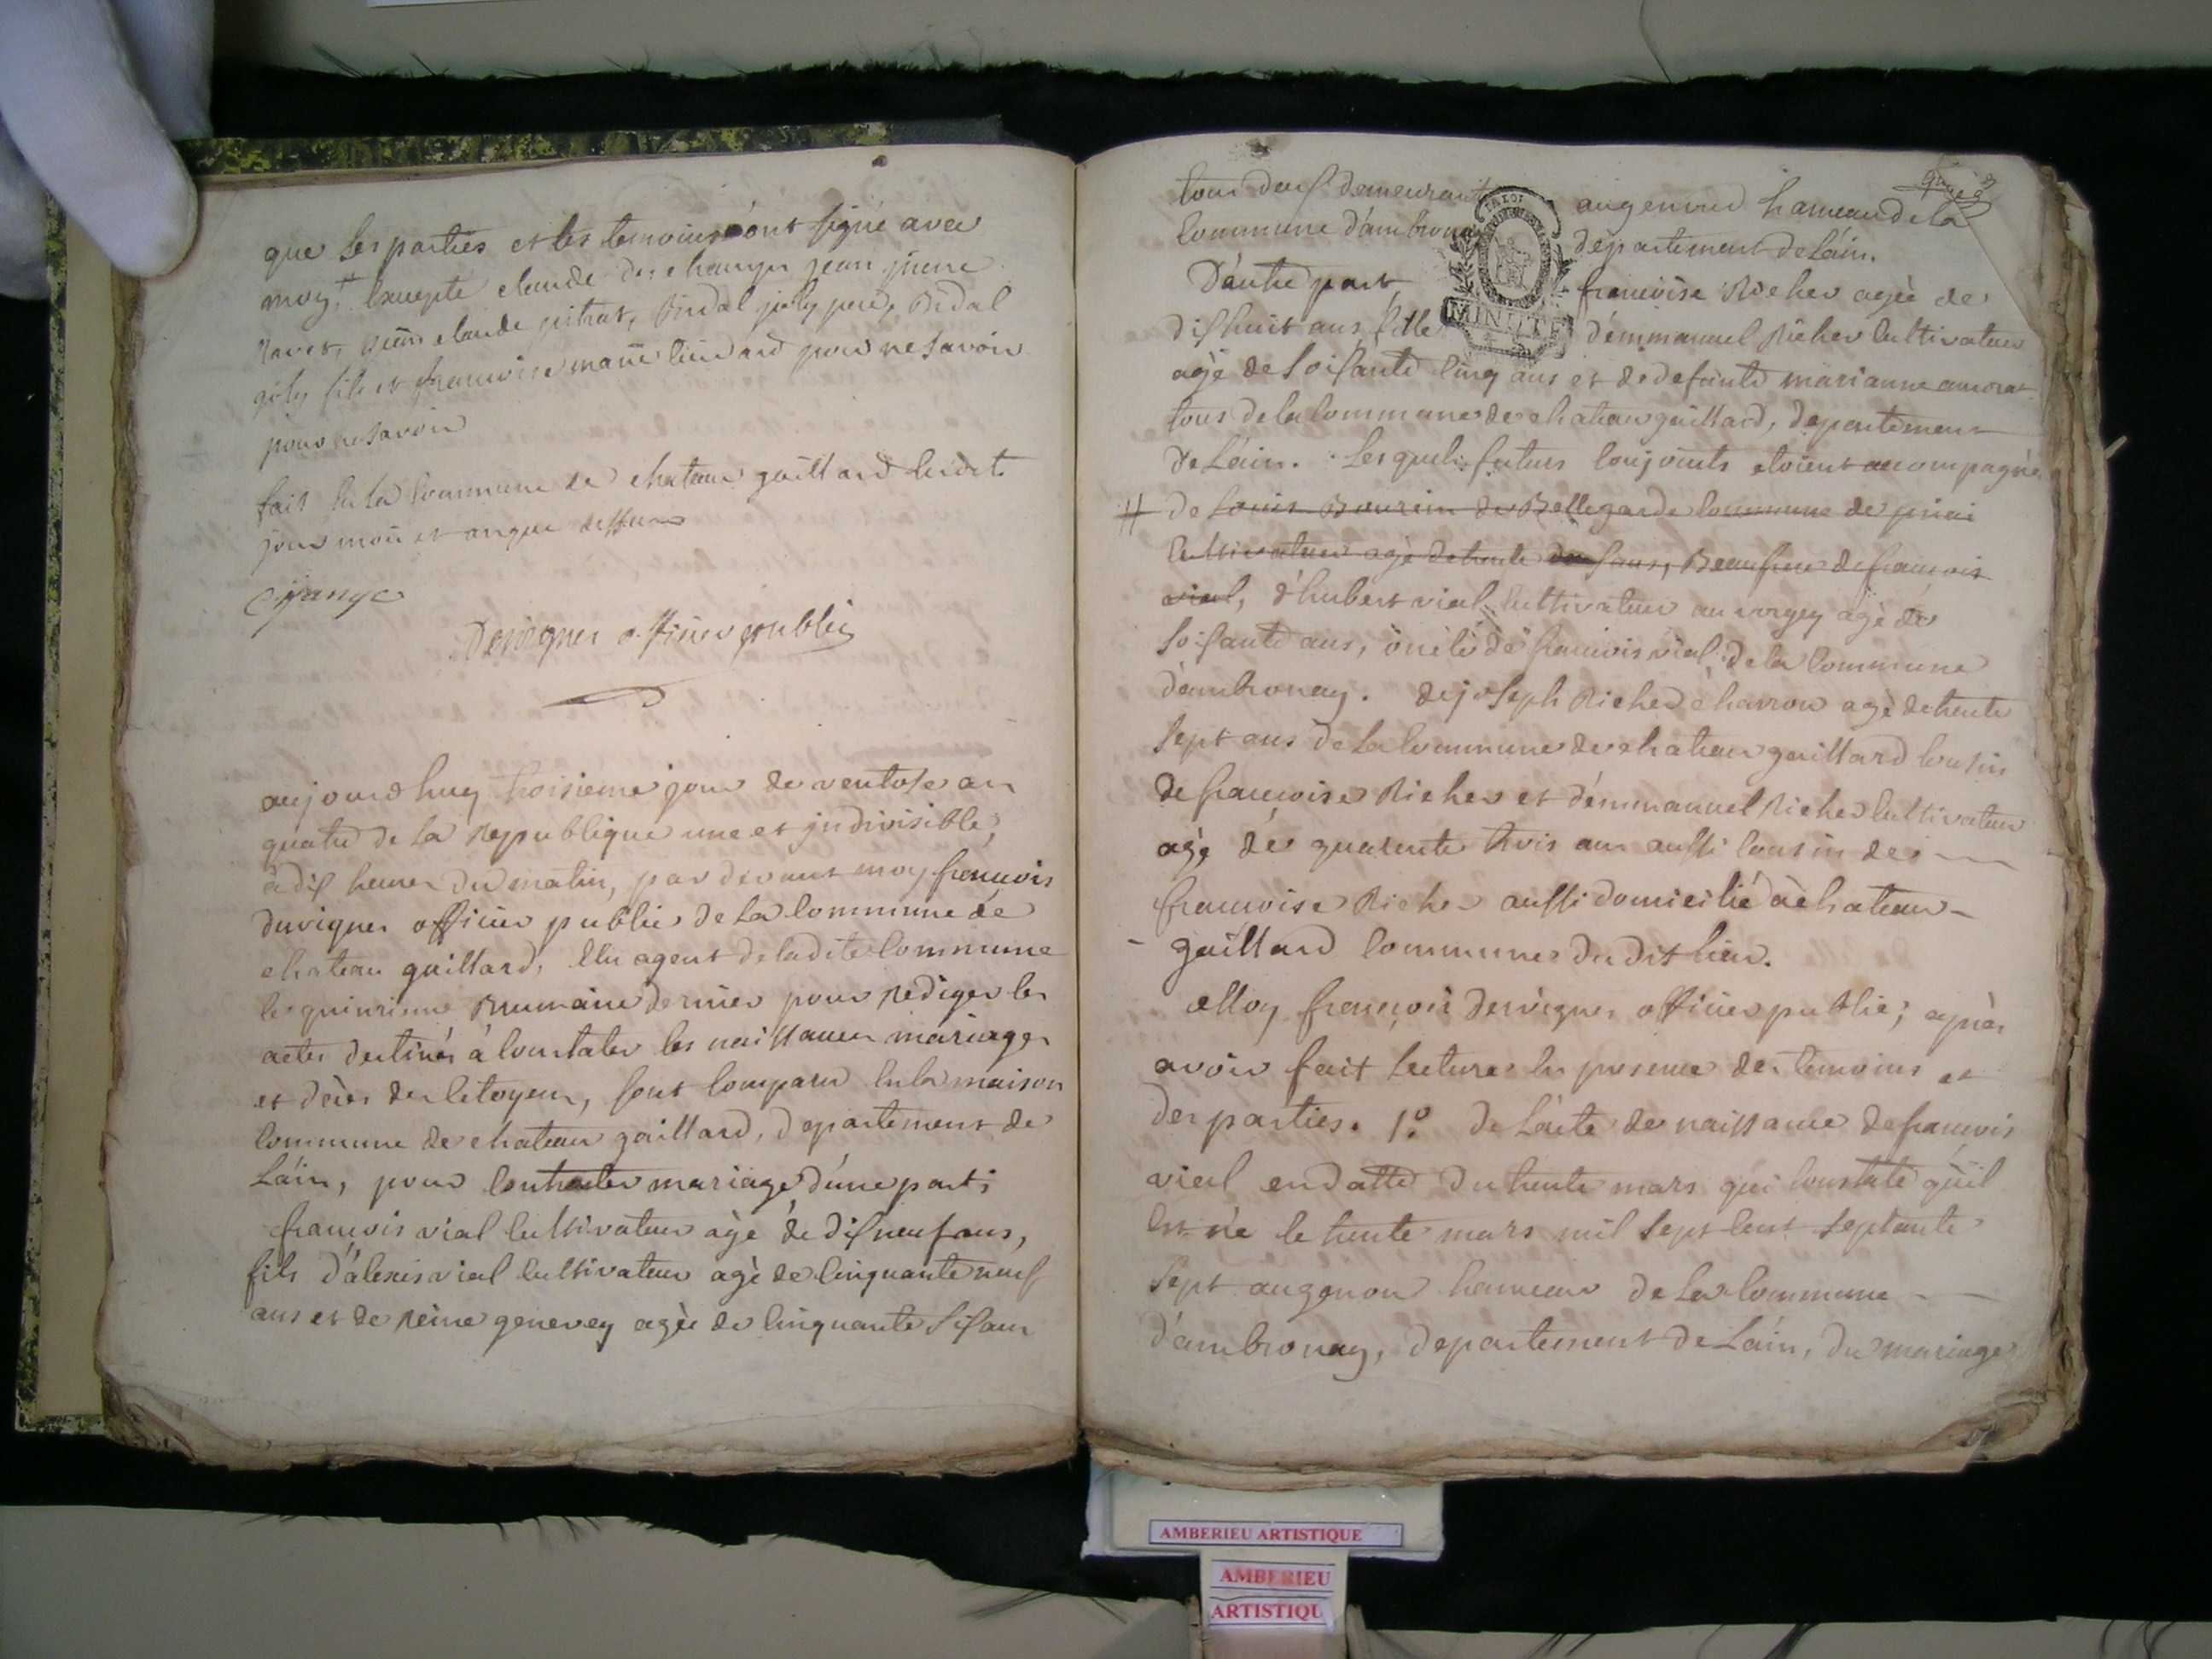 que les parties et les temoins ont signé avec
moy, Excepté claude des changes jean pierre
ravet, pierre claude pitrat, Bidal joly pere, Bidal
joly fils et francoise marie liendard pour ne savoir
pour ne savoir
fait En la Commune de chateau gaillard Lesdits
jour mois et an que dessus
Dervignes officier public
aujourdhuy troisieme jour de ventose an
quatre de la republique une et jndivisible,
a dix heures du matin, par devant moy francois
Duvignes officier public de la Commune de
chateau gaillard, Elu agent de ladite Commune
le quinzieme Brumaire dernier pour rediger les
actes destinés à Constater les naissances mariages
et décès des Citoyens, sont Comparus En la maison
Commune de chateau gaillard, departement de
Láin, pour Contracter mariage d'une part;
francois vial Cultivateur agé de dix neuf ans,
fils d'alexis vial Cultivateur agé de Cinquante neuf
ans et de reine genevey agée de Cinquante six ans
tous deux demeurants au genoud hameau de la
Commune d'ambronay departement de Láin.
D'autre part francoise Richer agée de
dix huit ans, fille d'emmanuel Richer Cultivateur
agé de soixante Cinq ans et de defunte marianne amorat
tous de la Commune de chateau gaillard, departement
de Láin. Lesquels futurs Conjoints etoient accompagné
# de Louis Bourin de Bellegarde Commune de priai
Cultivateur agé de trente deux ans, Beaufrere de francois
vial, d'hubert vial Cultivateur au vorgey agé de
soixante ans, oncle de francois vial de la Commune
d'ambronay. de joseph Richer charron agé de trente
sept ans de la Commune de chateau gaillard Cousin
de francoise Richer et d'emmanuel Richer Cultivateur
agé de quarente trois ans aussi Cousin de
francoise Richer aussi domicilié à chateau-
- gaillard Commune du dit lieu.
Moy françois Dervignes officier public; après
avoir fait Lecture En presence des temoins et
des parties. 1.º de L'acte de naissance de francois
vial en datte du trente mars qui Constate qu'il
Est né le trente mars mil sept Cent septante
sept au genou hameau de la Commune
d'ambronay, departement de Láin, du mariage
MINUTE
AMBERIEU ARTISTIQUE
AMBERIEU
ARTISTIQU